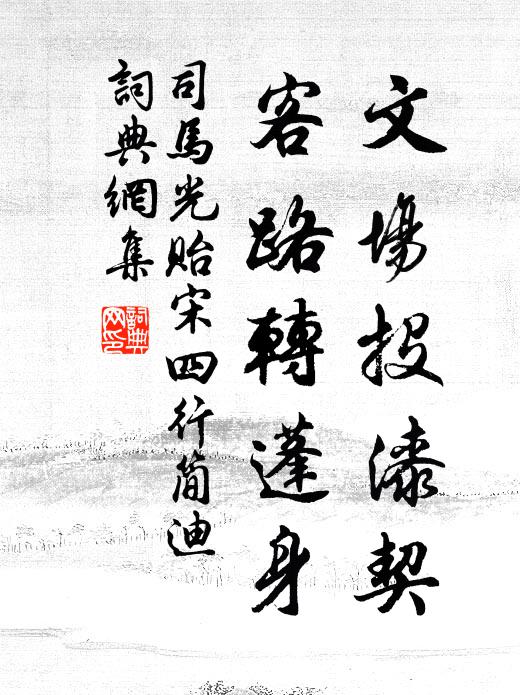 文場投漆契
客路轉蓬身
司馬光貽宋四行簡迪
詞典網集
詞典網印